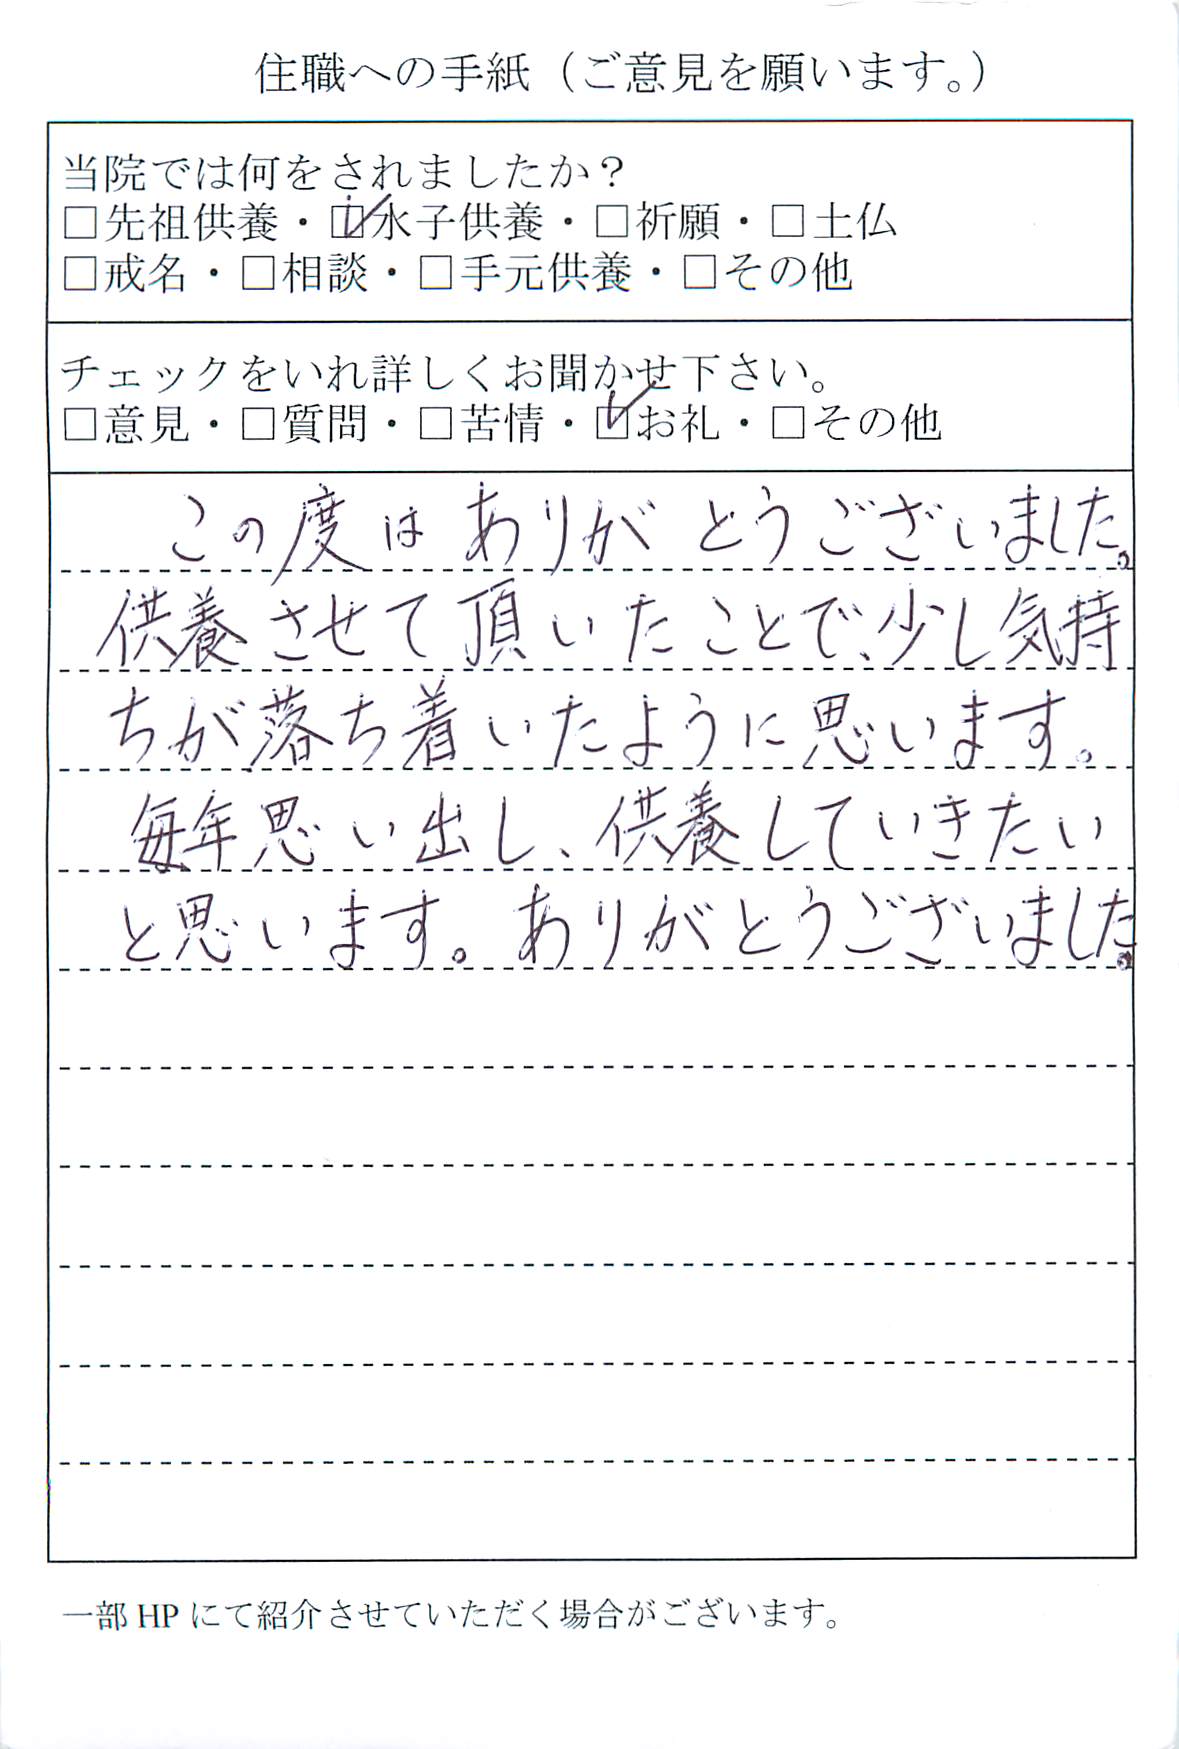 住職への手紙（ご意見を願います。）
当院では何をされましたか？
□先祖供養・☑水子供養・□祈願・□土仏
□戒名・□相談・□手元供養・□その他
チェックをいれ詳しくお聞かせ下さい。
□意見・□質問・□苦情・☑お礼・□その他
この度はありがとうございました。
供養させて頂いたことで、少し気持
ちが落ち着いたように思います。
毎年思い出し、供養していきたい
と思います。ありがとうございました。
一部 HP にて紹介させていただく場合がございます。